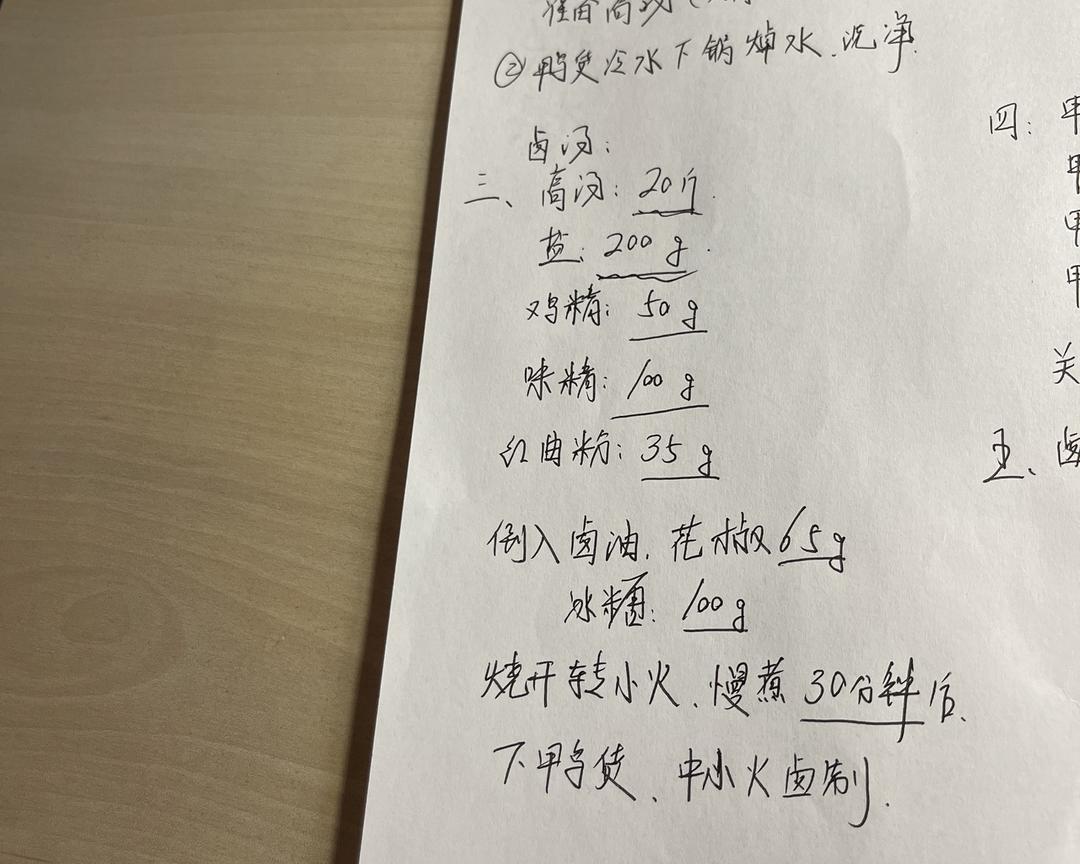 ②鸭货冷水下锅焯水.洗净.
卤汤:
三、高汤: 20斤.
盐: 200g.
鸡精: 50g
味精: 100g
红曲粉: 35g
倒入卤油、花椒65g
冰糖: 100g
烧开转小火、慢煮30分钟后.
下鸭货、中小火卤制.
四:
关
五、卤